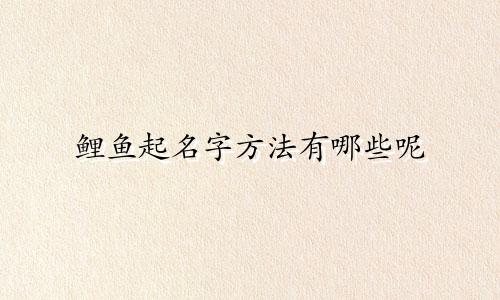 鲤鱼起名字方法有哪些呢